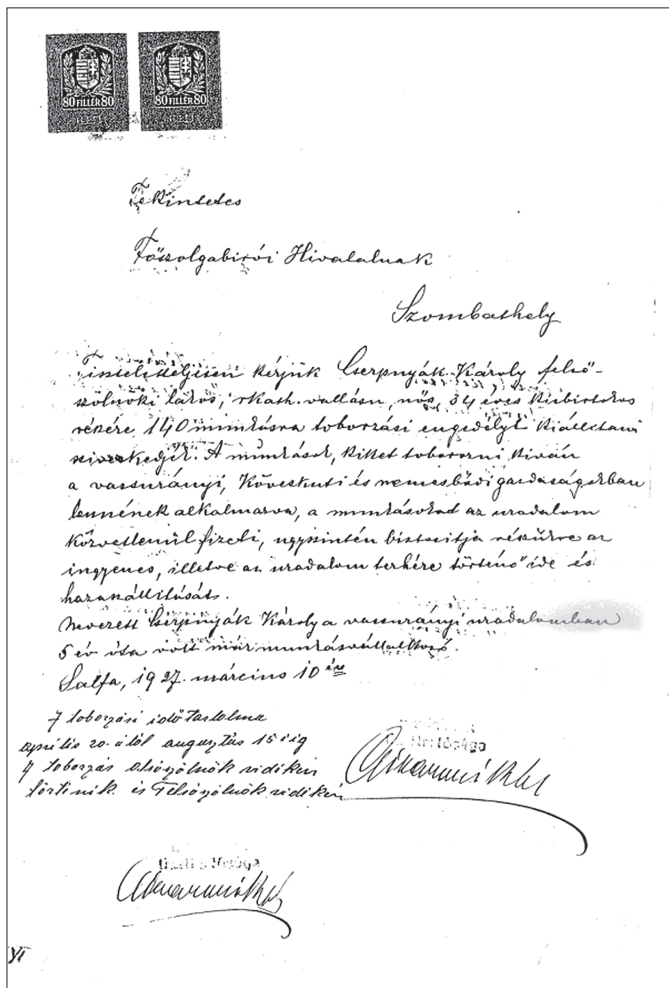 80 FILLÉR 80
80 FILLÉR 80
Tekintetes
Főszolgabirói Hivatalnak
Szombathely
Tiszteletteljesen kérjük Cserpnyák Károly felső-
szölnöki lakos, r.kath. vallásu, nős, 34 éves kisbirtokos
részére 140 munkásra toborzási engedélyt kiállitani
sziveskedjék. A munkások, kiket toborozni kiván
a vassurányi, köveskuti és nemesbődi gazdaságokban
lennének alkalmazva, a munkásokat az uradalom
közvetlenül fizeti, ugyszintén biztositja részükre az
ingyenes, illetve az uradalom terhére történő ide és
hazaszállitását.
Nevezett Cserpnyák Károly a vassurányi uradalomban
5 év óta volt már munkásvállalkozó.
Salfa, 1927. március 10 én
A toborzási idő tartalma
április 20-ától augusztus 15 éig
A toborzás alsószölnök vidékén
történik és Felsőszölnök vidékén
VI